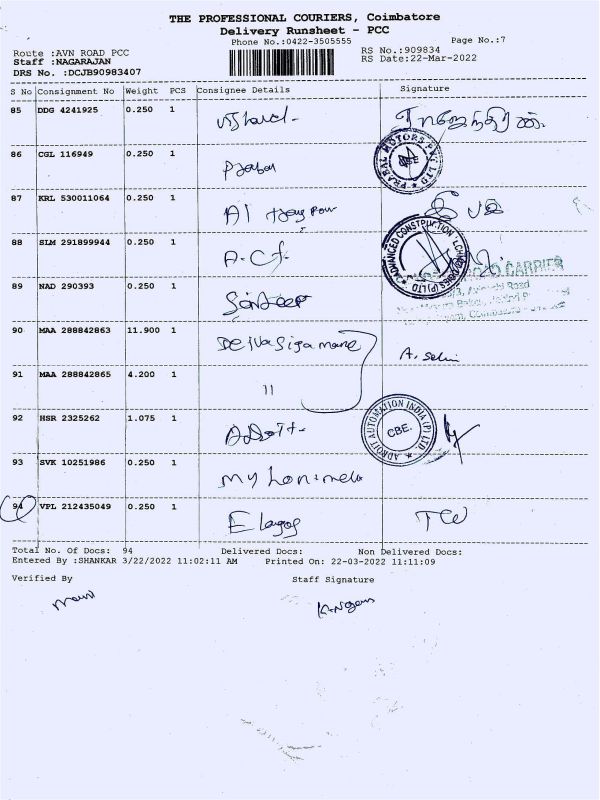 THE PROFESSIONAL COURIERS, Coimbatore
Delivery Runsheet - PCC
Phone No.:0422-3505555 Page No.:7
Route :AVN ROAD PCC RS No.:909834
Staff :NAGARAJAN RS Date:22-Mar-2022
DRS No. :DCJB90983407
S No Consignment No Weight PCS Consignee Details Signature
85 DDG 4241925 0.250 1
86 CGL 116949 0.250 1 Prabal
PRABAL MOTORS PVT LTD
87 KRL 530011064 0.250 1
88 SLM 291899944 0.250 1 A.C.J.
ADVANCED CONSTRUCTION (P) LTD
89 NAD 290393 0.250 1 Sandeep
CARRIER
Road
90 MAA 288842863 11.900 1 Deivasigamane
A. Selvi
91 MAA 288842865 4.200 1 "
92 HSR 2325262 1.075 1 Adroit
ADROIT AUTOMATION INDIA (P) LTD. CBE.
93 SVK 10251986 0.250 1
94 VPL 212435049 0.250 1
Total No. Of Docs: 94 Delivered Docs: Non Delivered Docs:
Entered By :SHANKAR 3/22/2022 11:02:11 AM Printed On: 22-03-2022 11:11:09
Verified By Staff Signature